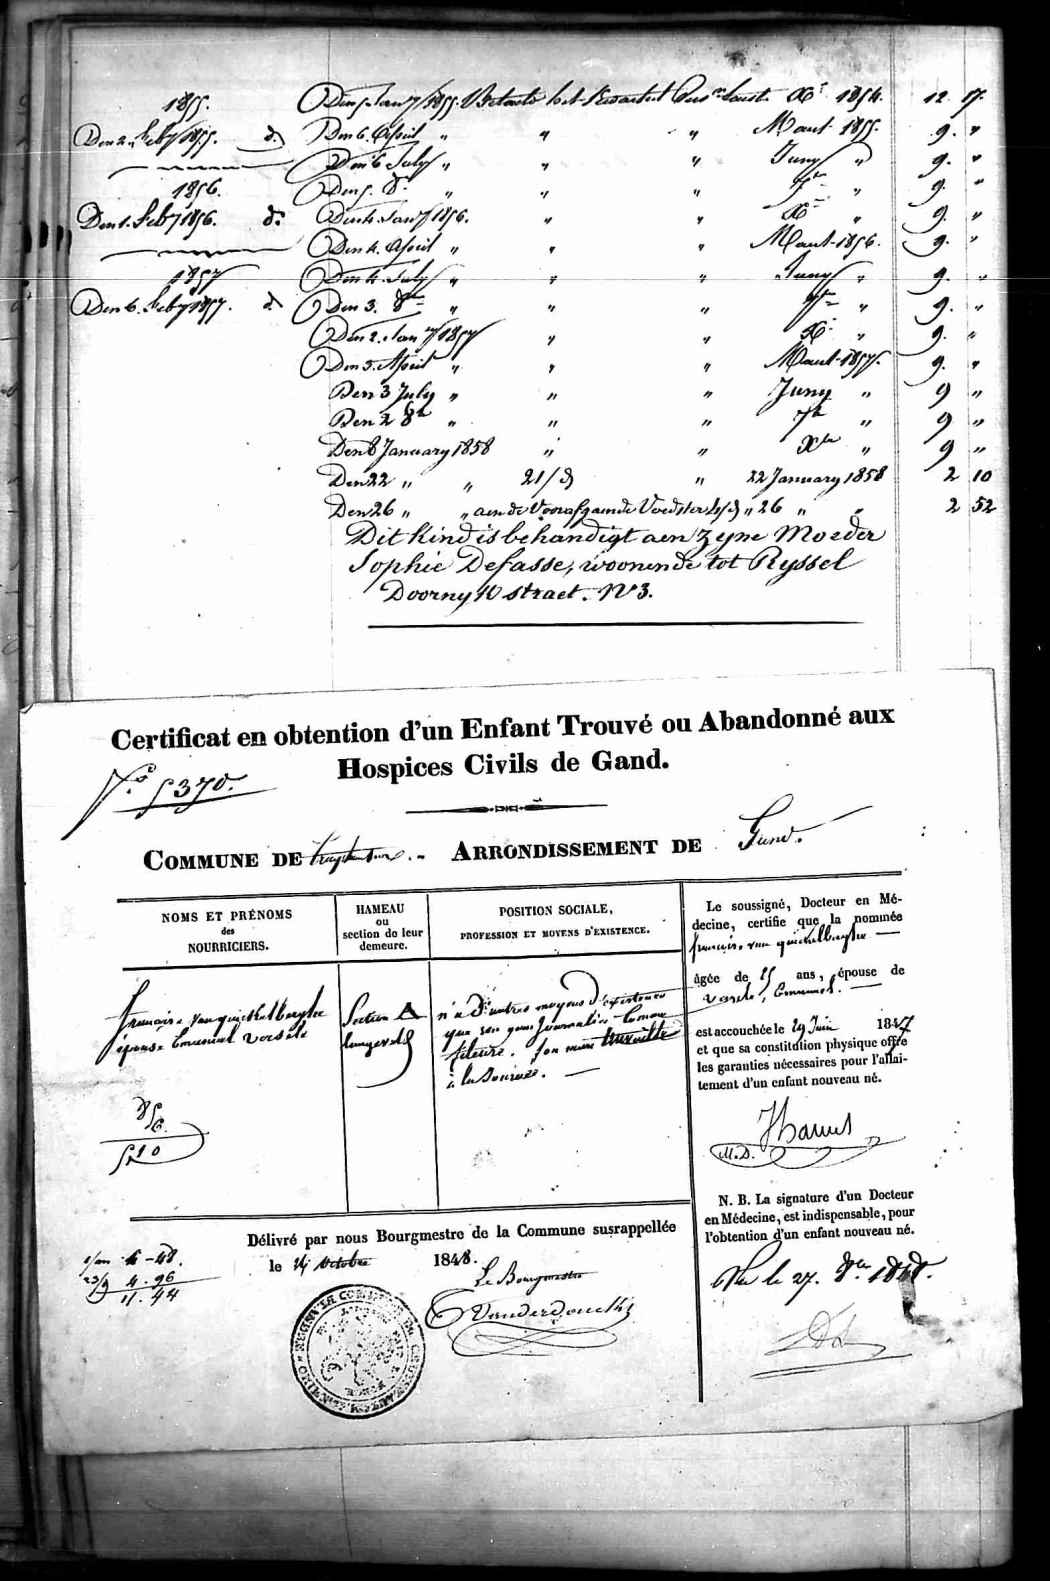 1855. Den 5 Jany 1855. Betaelt het kwartael Xr 1854. 12 17.
Den 2. Feby 1855. d. Den 6. April " " " Maart 1855. 9. "
Den 6 July " " " Juny " 9. "
1856. Den 5. 8r " " " 7r " 9. "
Den 1. Feby 1856. d. Den 4. Jany 1856. " " Xr " 9. "
Den 4. April " " " Maart 1856. 9. "
1857 Den 4. July " " " Juny " 9. "
Den 6. Feby 1857. d. Den 3. 8re " " " 7re " 9. "
Den 2. Jany 1857 " " Xr " 9. "
Den 3. April " " " Maart 1857. 9. "
Den 3 July " " " Juny " 9 "
Den 2 8re " " " 7re " 9 "
Den 8 January 1858 " " Xbre " 9 "
Den 22 " " 21/d " 22 January 1858 2 10
Den 26 " " aen de Voorafgaende Voedster " 26 " " 2 52
Dit kind is behandigt aen zyne Moeder
Sophie Defasse, woonende tot Ryssel
Doornyk straet. N 3.
Certificat en obtention d'un Enfant Trouvé ou Abandonné aux
Hospices Civils de Gand.
No. 5370.
COMMUNE DE ARRONDISSEMENT DE Gand.
NOMS ET PRÉNOMS
des
NOURRICIERS.
HAMEAU
ou
section de leur
demeure.
POSITION SOCIALE,
PROFESSION ET MOYENS D'EXISTENCE.
épouse
Section A
n'a d'autres moyens d'existence
que son gain Journalier comme
fileuse. son mari travaille
à la Journée.
Le soussigné, Docteur en Mé-
decine, certifie que la nommée
âgée de 25 ans, épouse de
est accouchée le 29 Juin 1847
et que sa constitution physique offre
les garanties nécessaires pour l'allai-
tement d'un enfant nouveau né.
M.D.
N. B. La signature d'un Docteur
en Médecine, est indispensable, pour
l'obtention d'un enfant nouveau né.
Vu le 27. 8bre 1848.
Délivré par nous Bourgmestre de la Commune susrappellée
le 24 octobre 1848.
Le Bourgmestre
Vanderdonckt
510
6-48.
4.96
11.44